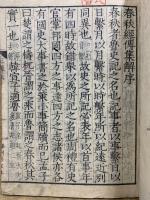 春秋經傳集解序
春秋者魯史記之名也記事者以事繫日以
日繫月以月繫時以時繫年所以紀遠近別
同異也故史之所記必表年以首事年
有四時故錯舉以為所記之名也周禮有史
官掌邦國四方之事達四方之志諸侯亦各
有國史大事書之於策小事簡牘而已孟子
曰楚謂之檮杌晉謂之乘而魯謂之春秋其
實一也韓宣子適魯